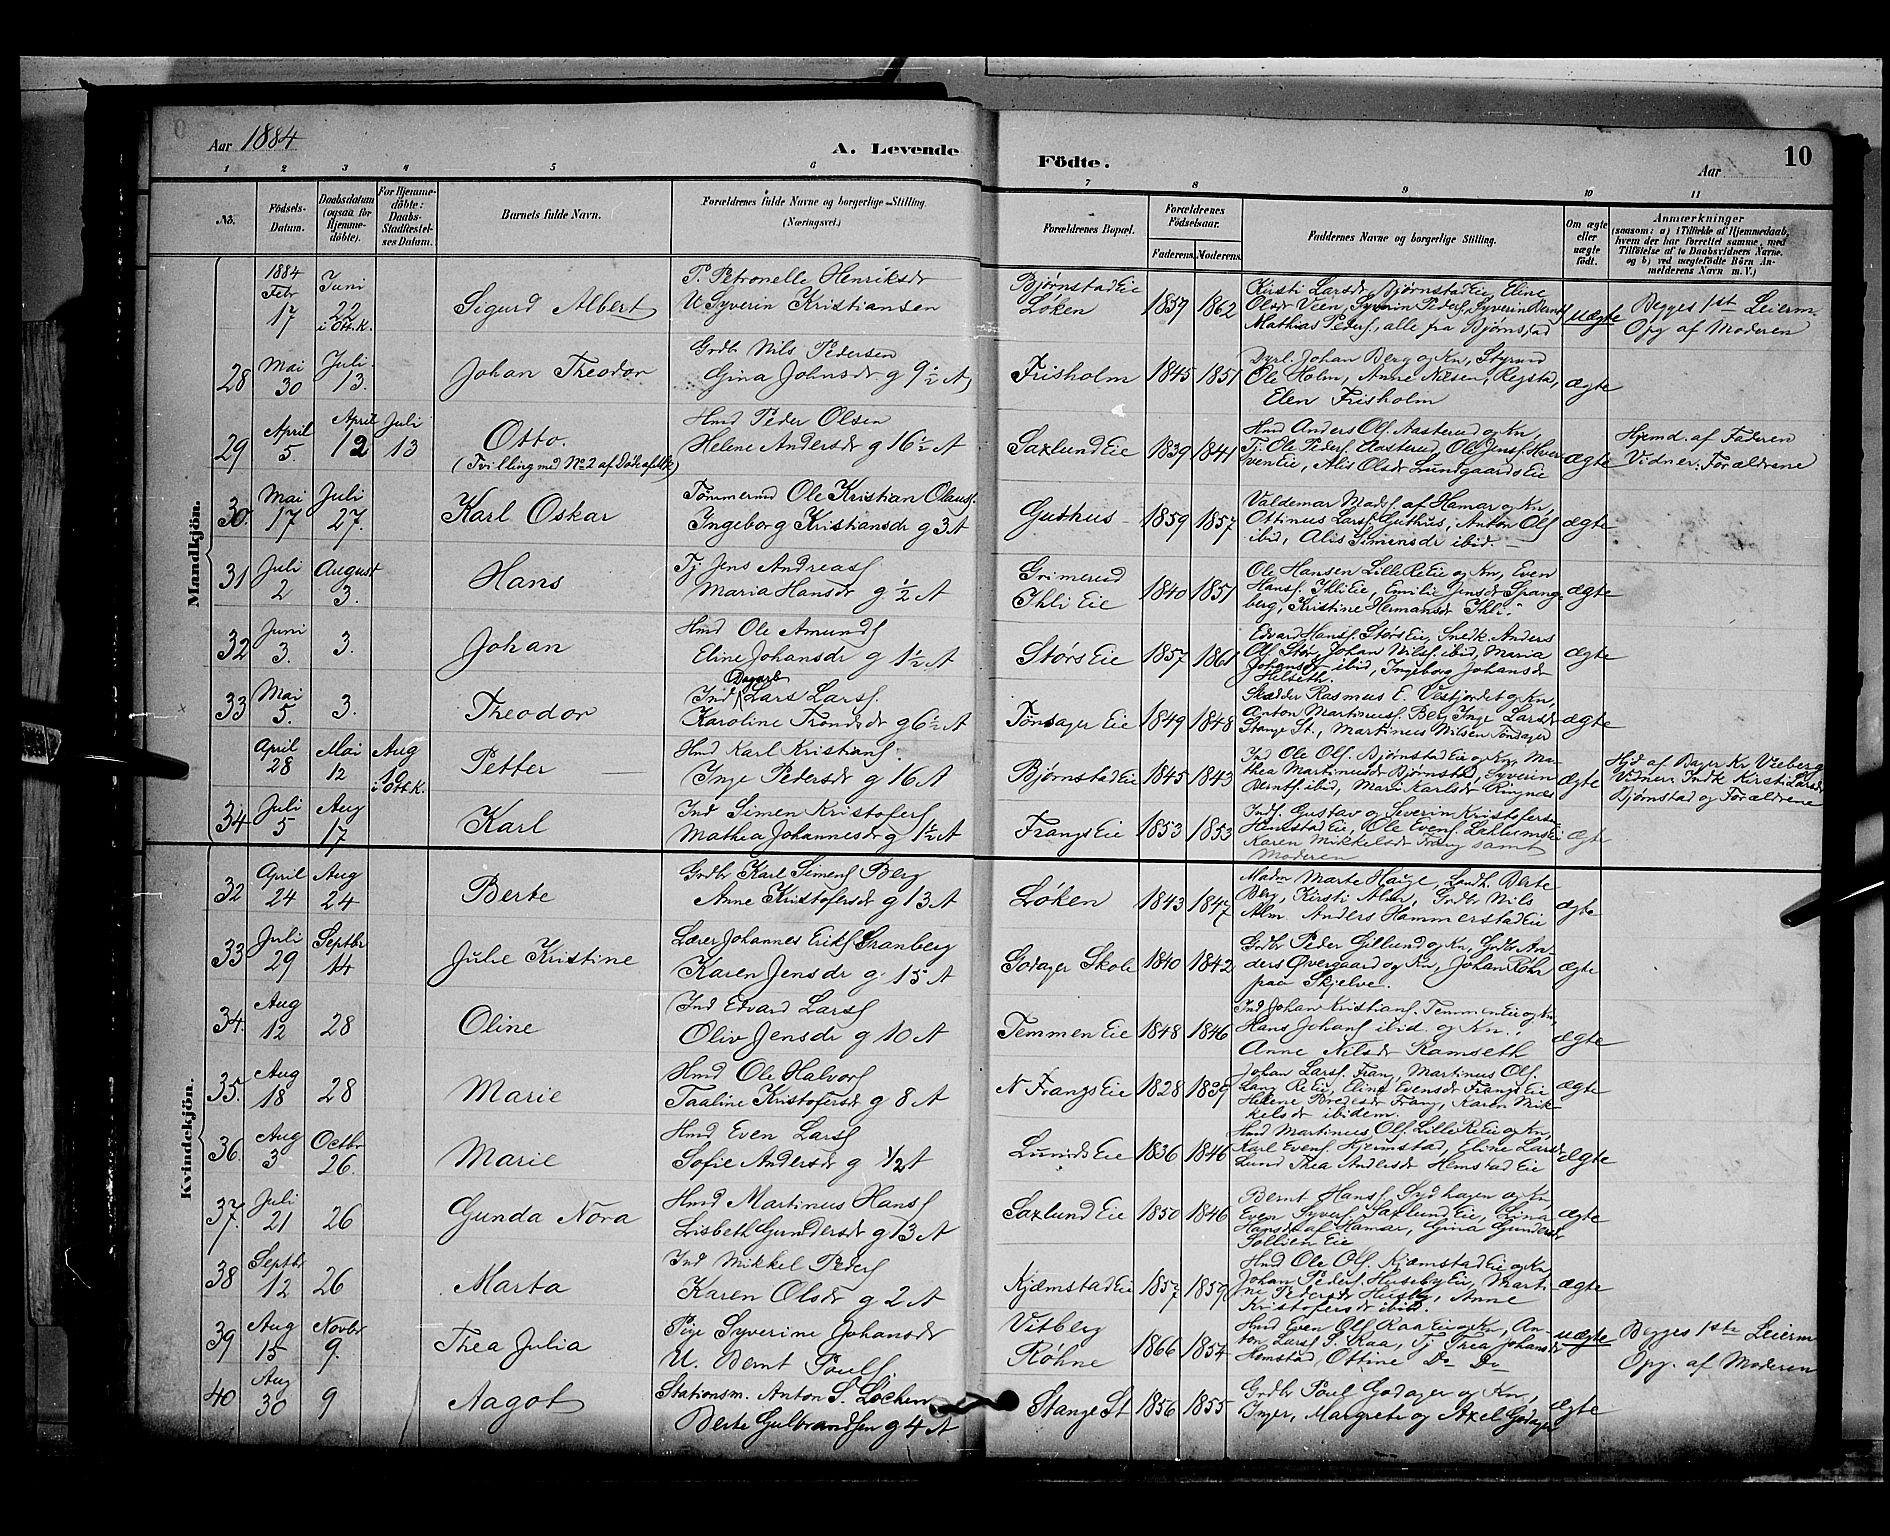 Aar 1884
A. Levende
Födte.
Aar
10
1 2 3 4 5 6 7 8 9 10 11
No.
Födsels-
Datum.
Daabsdatum
(ogsaa for
Hjemme-
döbte).
For Hjemme-
döbte:
Daabs-
Stadfæstel-
ses Datum.
Barnets fulde Navn.
Forældrenes fulde Navne og borgerlige Stilling.
(Næringsvei.)
Forældrenes Bopæl.
Forældrenes
Födselsaar.
Faderens. Moderens.
Faddernes Navne og borgerlige Stilling.
Om ægte
eller
uægte
födt.
Anmærkninger
(saasom: a) i Tilfælde af Hjemmedaab,
hvem der har forrettet samme, med
Tilföielse af to Daabsvidners Navne,
og b) ved uægtefödte Börn An-
melderens Navn m. V.)
Mandkjön.
1884
Febr
17
Juni
22
i Ott.K.
Sigurd Albert
P. Petronelle Henriksdr
U Syverin Kristiansen
Bjørnstad Eie
Løken
1857 1862
Kirsti Larsdr, Bjørnstad Eie, Eline
Olsdr Veen, Syverin Peders, Syverin Bernts
Mathias Peders, alle fra Bjørnstad
uægte
Begges 1ste Leierm
Opg af Moderen
28
Mai
30
Juli
13.
Johan Theodor
Grdb Nils Pedersen
Gina Johnsdr g 9½ A
Frisholm
1845 1851
Dyrl. Johan Berg og Kn, Styrmd
Ole Holm, Anne Nilsen, Rejstad,
Elen Frisholm
ægte
29
April
5.
April
12
Juli
13
Otto.
(Tvilling med No 2 af Døde af Mk)
Hmd Peder Olsen
Helene Andersdr g 16½ A
Saxlund Eie
1839 1841
Hmd Anders Ols. Aasterud og Kn,
Tj Ole Peders. Aasterud, Ole Jens. Hver
ven Eie, Alis Olsdr Lundgaards Eie
ægte
Hjemd. af Faderen
Vidner: Forældrene
30.
Mai
17
Juli
27.
Karl Oskar
Tømmermd Ole Kristian Olaus.
Ingeborg Kristiansdr g 3 A
Guthus
1859 1857
Valdemar Mads. af Hamar og Kn,
Ottinus Lars. Guthus, Anton Ols
ibid, Alis Simensdr ibid. —
ægte
31
Juli
2
August
3.
Hans
Tj Jens Andreas.
Maria Hansdr g. ½ A
Grimerud
Ihli Eie
1840 1851
Ole Hansen Lille Re Eie og Kn, Even
Hans. Ihli Eie, Emilie Jensdr Spang-
berg, Kristine Hermansdr Ihli.
ægte
32
Juni
3.
3.
Johan
Hmd Ole Amunds
Eline Johansdr g 1½ A
Størs Eie
1857 1861
Edvard Hans. Størs Eie, Snedk. Anders
Ols. Stør, Johan Nils. ibid, Maria
Johansdr ibid, Ingeborg Johansdr
Helseth.
ægte
33
Mai
5.
3.
Theodor
Ind Lars Lars.
Karoline Trondsdr g 6½ A
Tønsager Eie
1849 1848
Skædder Rasmus E. Vesfjordet og Kn,
Anton Martinus. Berg, Inge Larsdr
Stange St., Martinus Nilsen Tønsager
ægte
April
28
Mai
12
Aug
10
i Ott.K.
Petter —
Hmd Karl Kristians.
Inge Pedersdr g 16 A
Bjørnstad Eie
1845 1843
Ind Ole Ols. Bjørnstad Eie og Kn, Ma-
thea Martinusdr Bjørnstd, Syverin
Bernts. ibid, Marie Karlsdr Ringnæs
ægte
Hjd af Bager Kr Viberg
Vidner: Indk Kirsti Larsdr
Bjørnstad og Forældrene
34
Juli
5
Aug
17
Karl
Ind Simen Kristofers
Mathea Johannesdr g 1½ A
Frangs Eie
1853 1853
Inds. Gustav og Severin Kristofers.
Hemstad Eie, Ole Evens. Leklums Ei
Karen Mikkelsdr Frang samt
Moderen
ægte
Kvindekjön.
32
April
24
Aug
24
Berte
Grdbr Karl Simens Berg
Anne Kristofersdr g 13 A
Løken
1843 1847
Madm Marte Hauge, Landh. Berte
Berg, Kirsti Alm, Grdbr Nils
Alm. Anders Hammerstad Eie
ægte
33
Juli
29
Septbr
14
Julie Kristine
Lærer Johannes Eriks. Granberg
Karen Jensdr g. 15 A
Godager Skole
1840 1842
Grdbr Peder Gillund og Kn, Grdbr An-
ders Øvergaard og Kn, Johan Røhr
paa Skjelve.
ægte
34.
Aug
12
28
Oline
Ind Edvard Lars
Oliv Jensdr g 10 A
Temmen Eie
1848 1846
Ind Johan Kristians. Temmen Eie og Kn,
Hans Johans ibid. og Kn.,
Anne Nilsdr Ramseth
ægte
35.
Aug
18
28
Marie
Hmd Ole Halvors
Taaline Kristofersdr g 8 A
N Frangs Eie
1828 1839
Johan Lars. Fran, Martinus Ols.
Lang Re Eie, Eline Evensdr Frangs Eie
Helene Bredesdr Frang, Karen Mik-
kelsdr ibidem.
ægte
36.
Aug
3
Octbr
26.
Marie
Hmd Even Lars
Sofie Andersdr g ½ A
Lunds Eie
1836 1846
Hmd Martinus Ols. Lille Re Eie og Kn,
Karl Evens. Hjemstad, Eline Larsdr
Lund Thea Andersdr Hemstad Eie
ægte
37.
Juli
21
26
Gunda Nora
Hmd Martinus Hans
Lisbeth Gundersdr g 13 A
Saxlund Eie
1850 1846
Bernt Hans. Sydhagen og Kn,
Even Syvers. Saxlund Eie, Lina
Hansdr af Hamar, Gina Gundersdr
Sollien Eie
ægte
38
Septbr
12
26
Marta
Ind Mikkel Peders
Karen Olsdr g 2 A
Kjæmstad Eie
1857 1859
Hmd Ole Ols. Kjæmstad Eie og Kn,
Johan Peders. Huseby Ei, Marti-
ne Pedersdr Huseby, Anne
Kristofersdr ibid.
ægte
39
Aug
15
Novbr
9.
Thea Julia
Pige Syverine Johansdr
U. Bernt Pouls
Vitberg
Røhne
1866 1854
Hmd Even Ols. Raa Eie og Kn, An-
ton Lars. S. Raa, Tj Thea Johansdr
Hemstad, Ottine Do Do
uægte
Begges 1ste Leierm
Opg. af Moderen
40
Aug
30
9
Aagot
Stationsm. Anton S. Lochen
Berte Gulbrandsen g 4 A
Stange St
1856 1855
Grdbr Poul Godager og Kn,
Inger, Margrete og Axel Godager
ægte